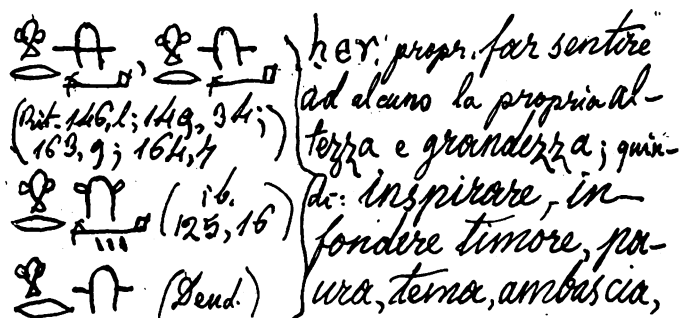 (Rit. 146, l; 149, 34;
163, 9; 164, 7)
(ib.
125, 16)
(Dend.)
ḥer, propr. far sentire
ad alcuno la propria al-
tezza e grandezza; quin-
di: inspirare, in-
fondere timore, pa-
ura, tema, ambascia,